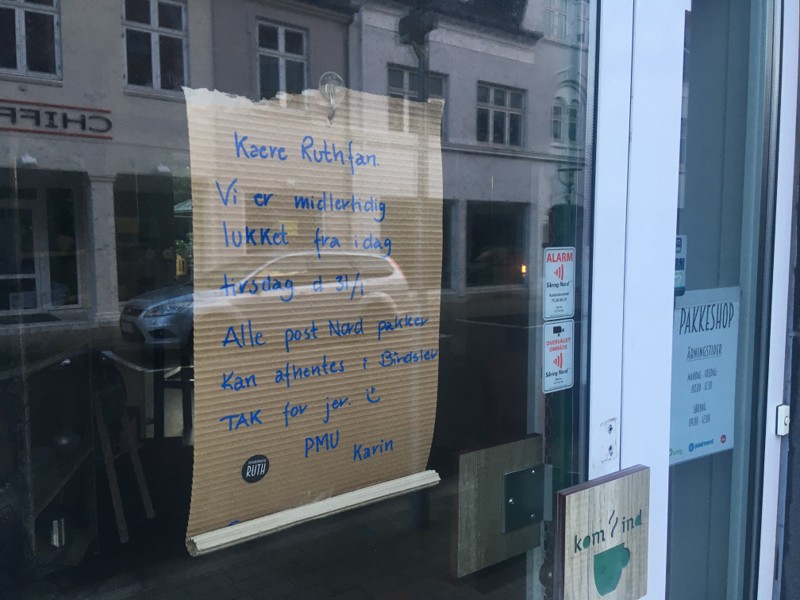 Kære Ruthfan.
Vi er midlertidig
lukket fra idag
tirsdag d 31/1
Alle post Nord pakker
Kan afhentes i Bindslev
TAK for jer.
PMU Karin
RUTH
CHIFF
ALARM
Sikring Nord
OVERVÅGET
OMRÅDE
Sikring Nord
PAKKESHOP
ÅBNINGSTIDER
LØRDAG
postnord
kom ind